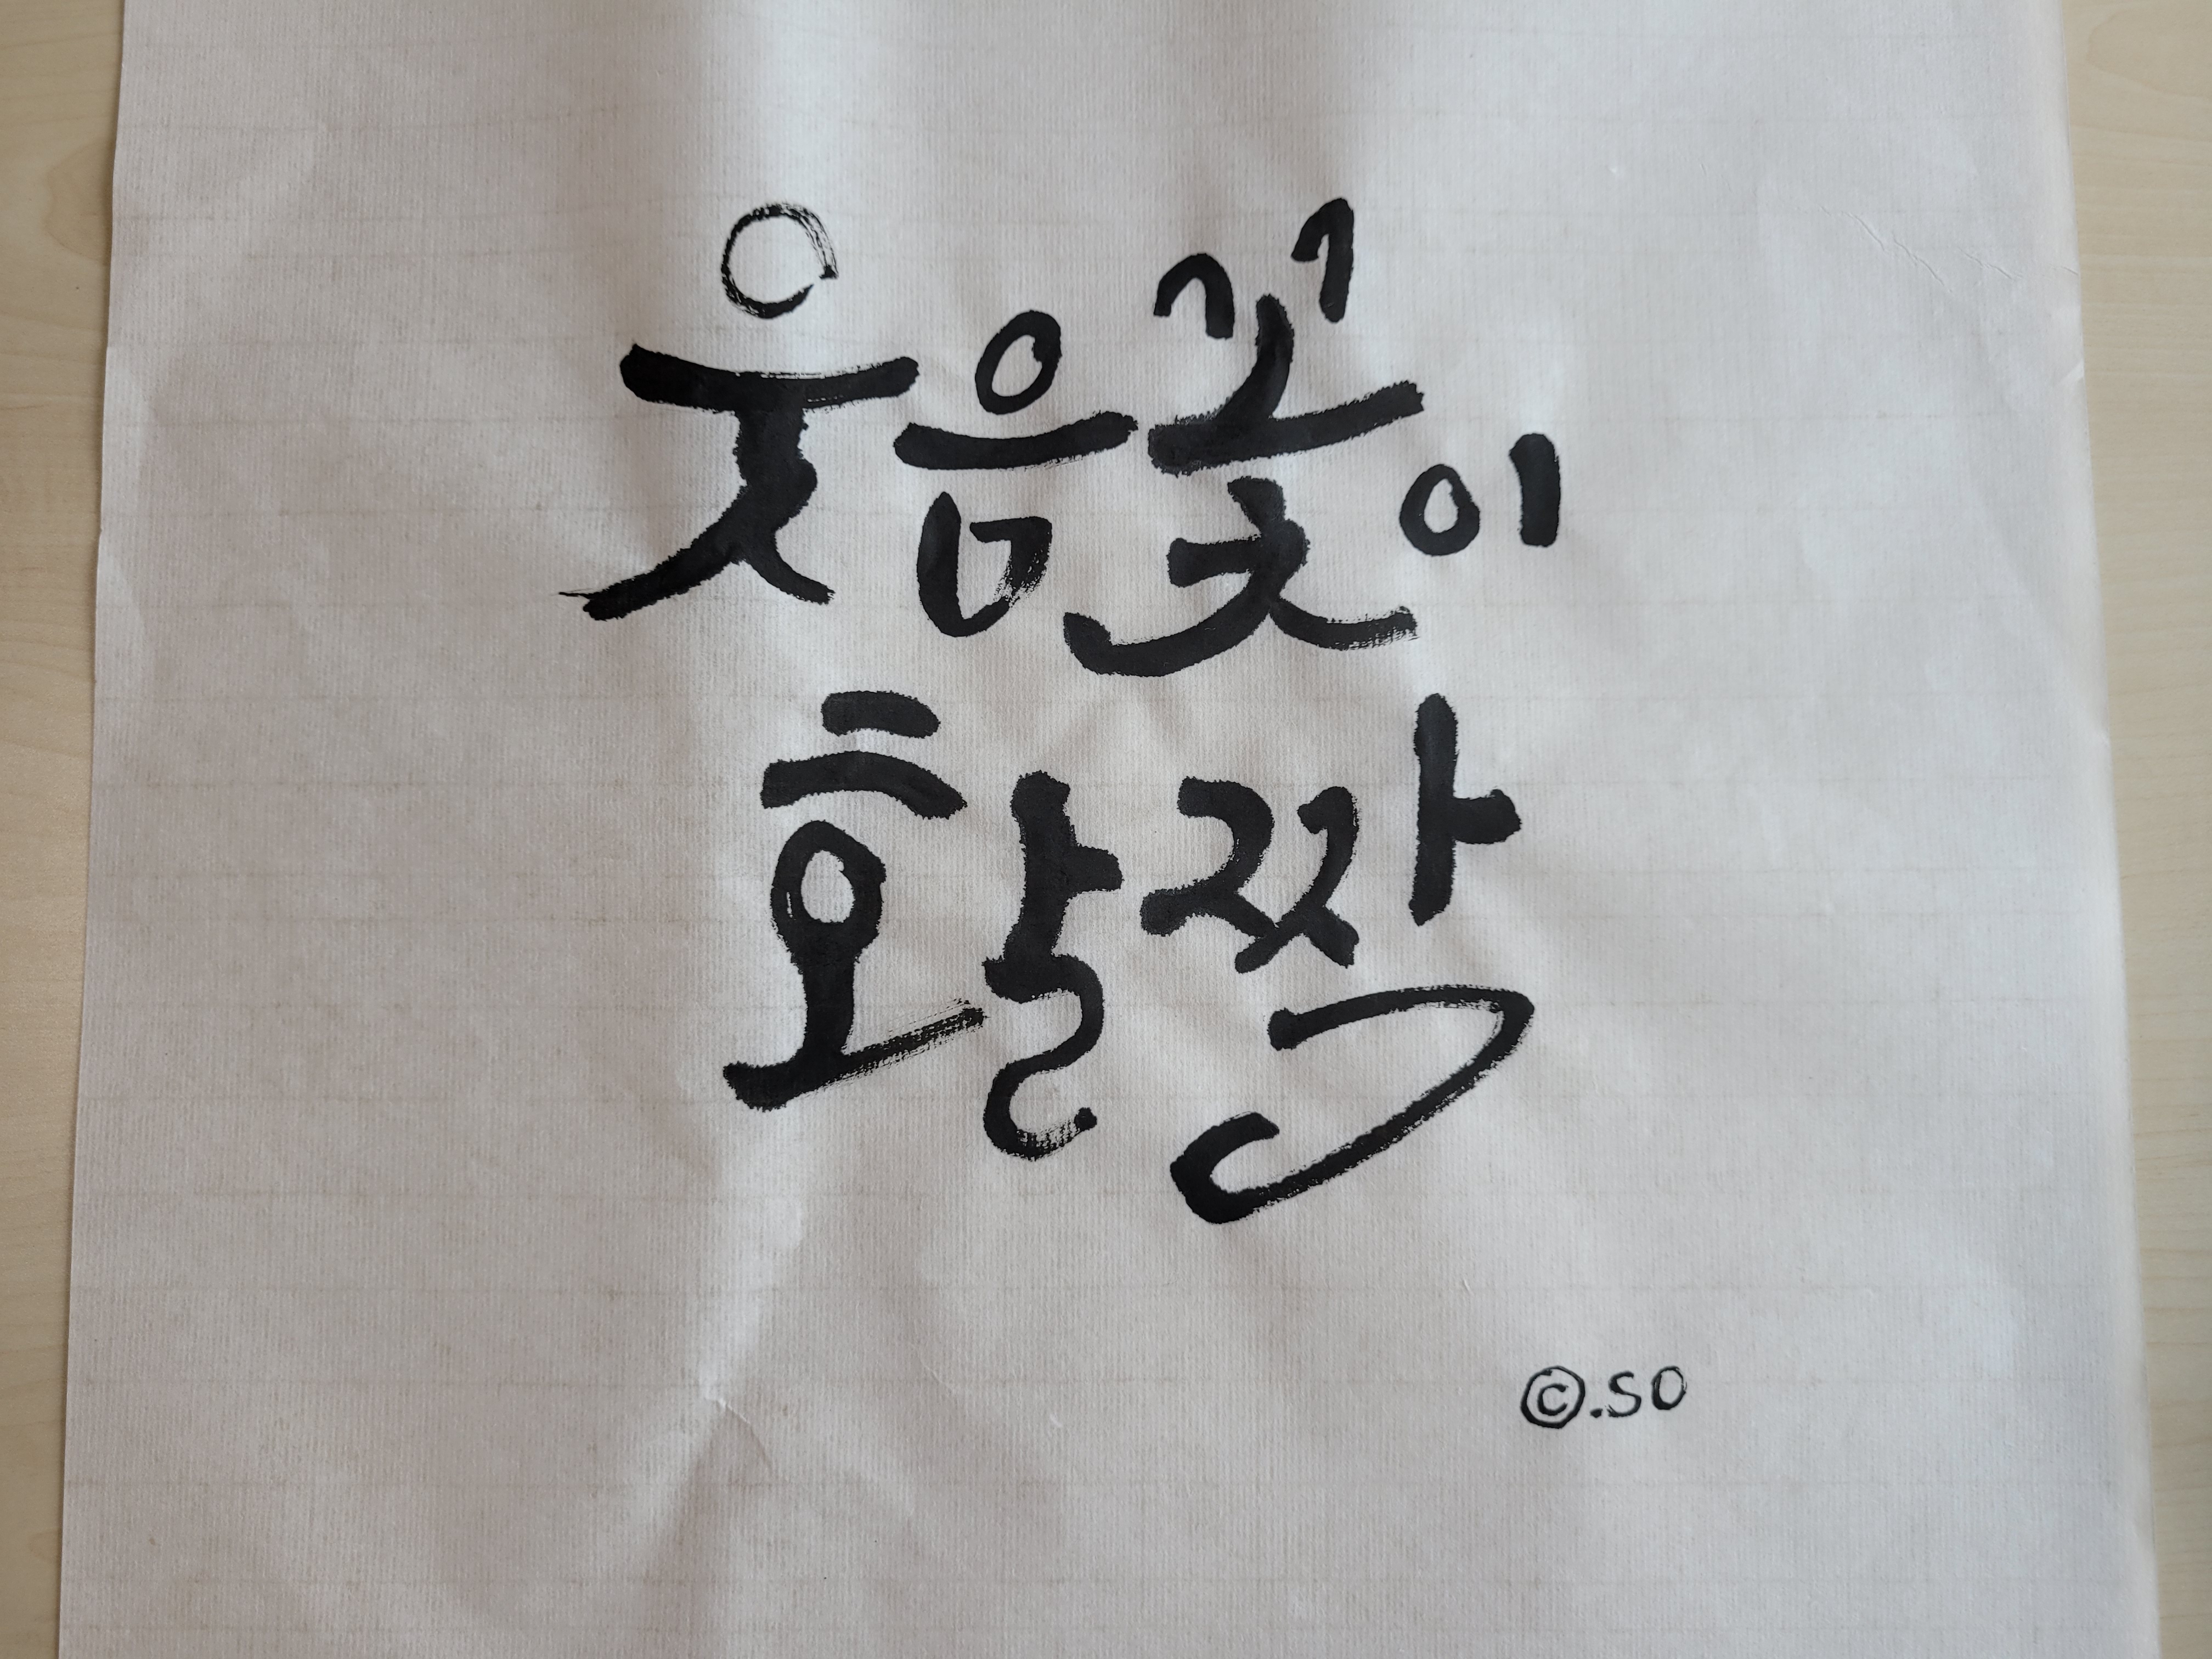 웃음꽃이
활짝
©.so